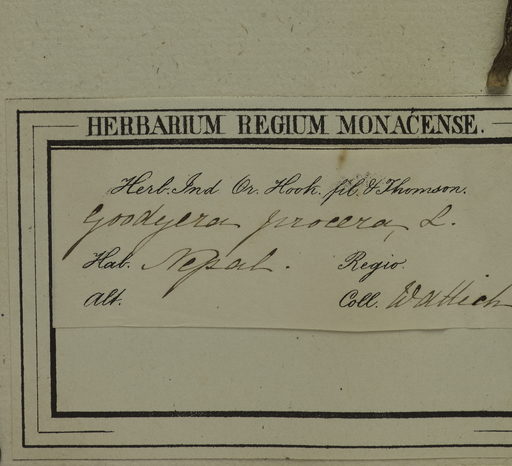 HERBARIUM REGIUM MONACENSE.
Herb. Ind Or. Hook. fil. & Thomson.
Goodyera procera, L.
Hab. Nepal. Regio.
Alt. Coll. Wallich